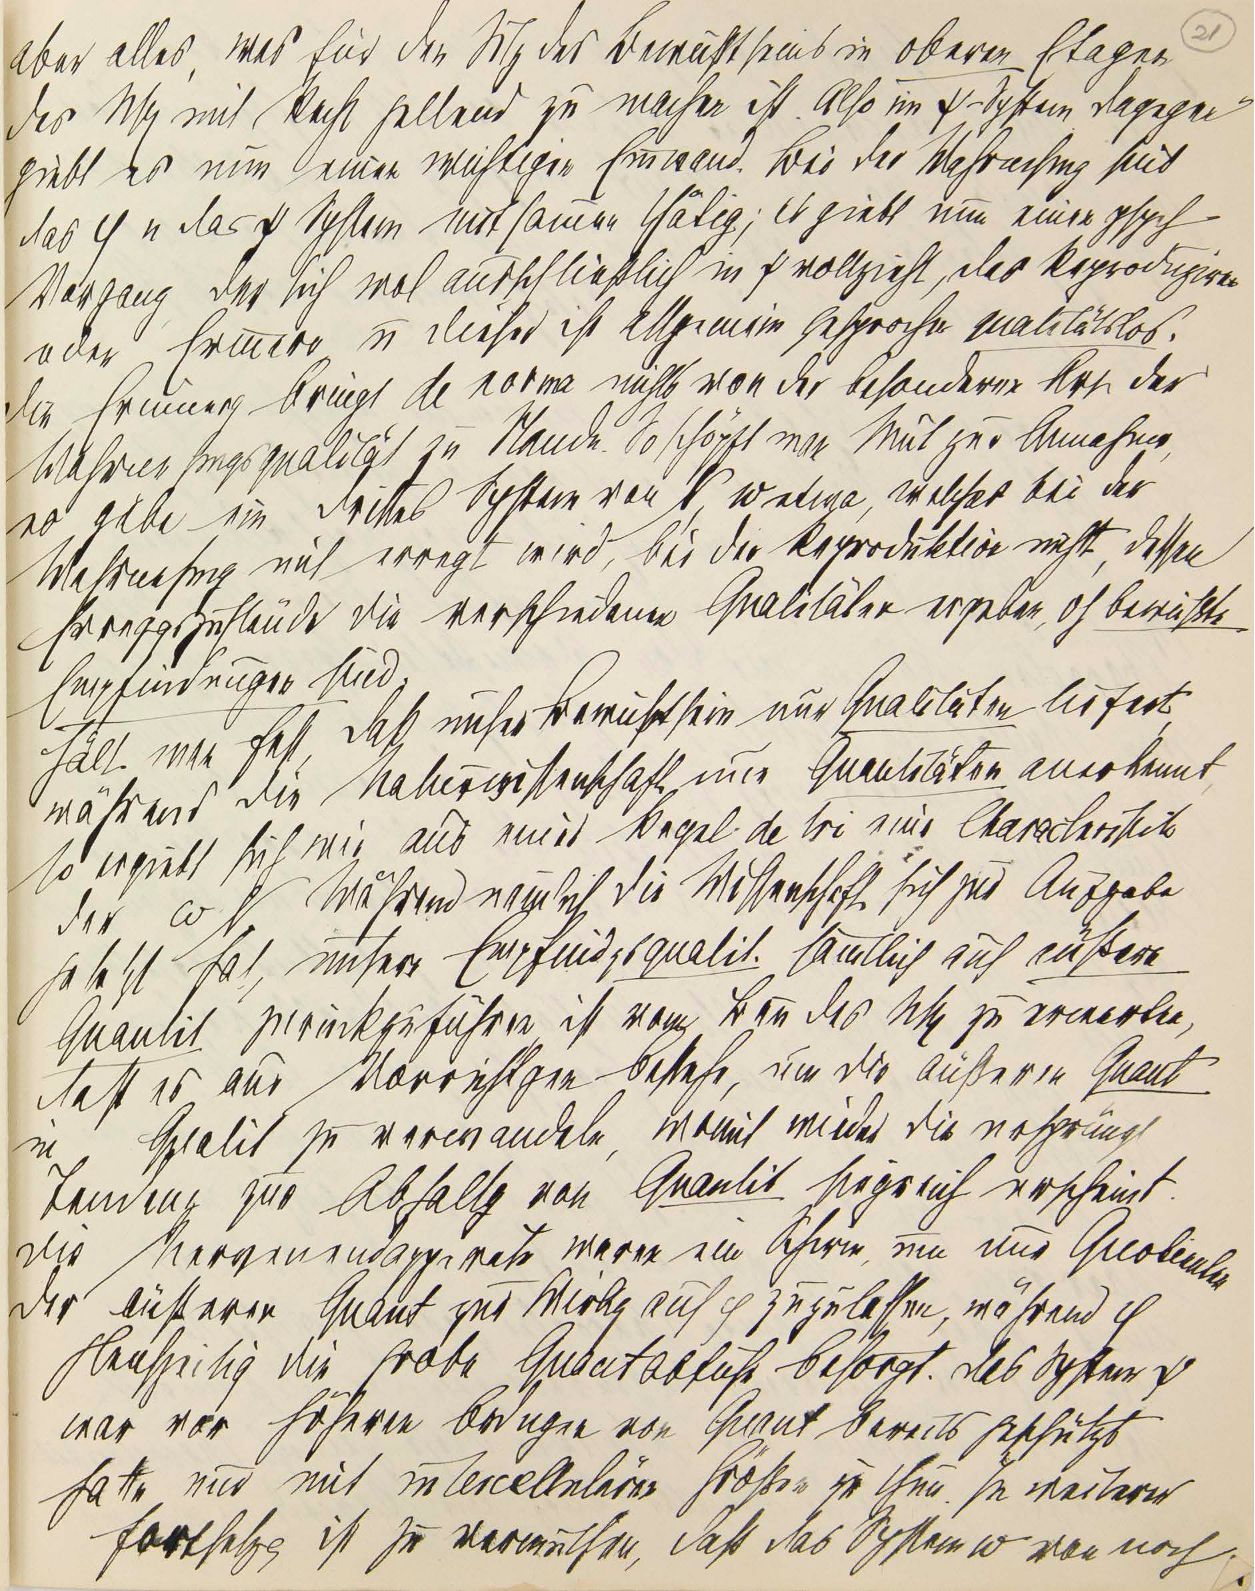 21
aber alles, was für den Sitz des Bewußtseins in oberen Etagen
des NSy mit Recht geltend zu machen ist. Also im ψ-System. Dagegen
giebt es nun einen wichtigen Einwand. Bei der Wahrnehmg sind
das φ u das ψ System mitsammen thätig; es giebt nun einen psych
Vorgang, der sich wol ausschließlich in ψ vollzieht, das Reproduziren
oder Erinnern u dieser ist allgemein gesprochen qualitätslos.
die Erinnerg bringt de norma nichts von der besonderen Art der
Wahrnehmgsqualität zu Stande. So schöpft man Mut zur Annahme,
es gäbe ein drittes System von N, ω etwa, welches bei der
Wahrnehmg mit erregt wird, bei der Reproduktion nicht, dessen
Erreggszustände die verschiedenen Qualitäten ergeben, dh bewußte
Empfindungen sind.
Hält man fest, daß unser Bewußtsein nur Qualitäten liefert,
während die Naturwissenschaft nur Quantitäten anerkennt,
so ergiebt sich wie aus einer Regel de tri eine Charakteristik
der ω N. Während nemlich die Wissenschaft sich zur Aufgabe
gesetzt hat, unsere Empfindgsqualit. sämtlich auf äußere
Quantit zurückzuführen, ist vom Bau des NSy zu erwarten,
daß es aus Vorrichtgen bestehe, um die äußeren Quant
in Qualit zu verwandeln, womit wieder die ursprüngl
Tendenz zur Abhaltg von Quantit siegreich erscheint.
die Nervenendapparate waren ein Schirm, um nur Quotienten
der äußeren Quant zur Wirkg auf φ zuzulassen, während φ
gleichzeitig die grobe Quantabfuhr besorgt. das System ψ
war vor höheren Ordnugen von Quant bereits geschützt
hatte nur mit intercellulären Größen zu thun. In weiterer
Fortsetzg ist zu vermuthen, daß das System ω von noch